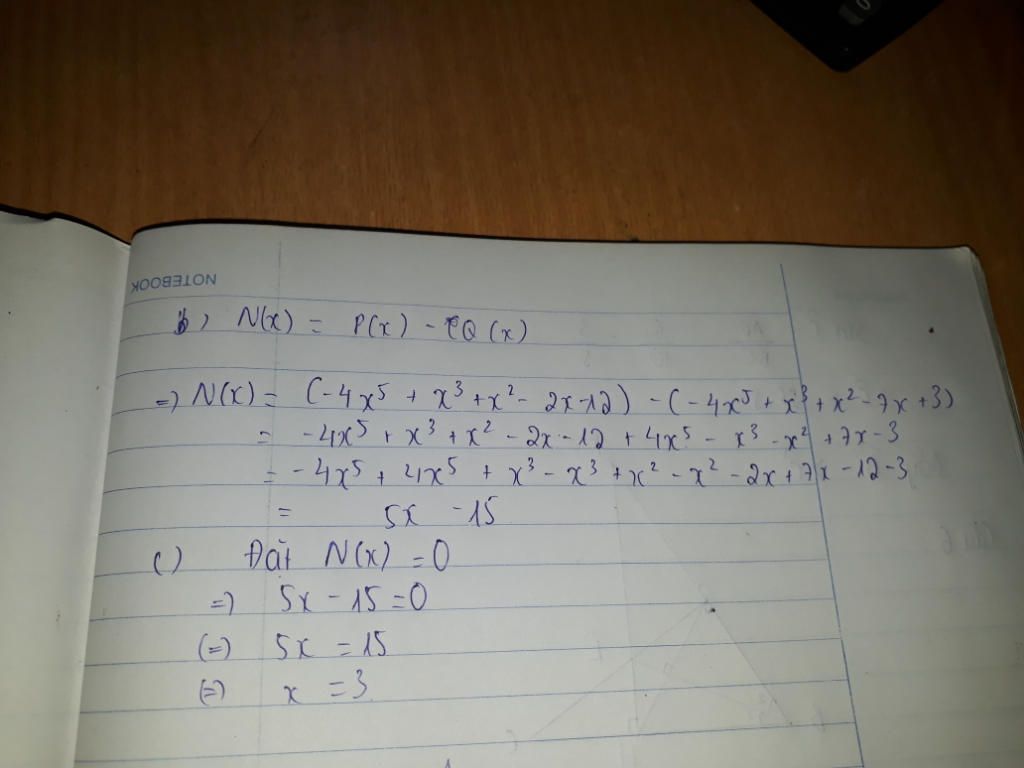 NOTEBOOK
b) N(x) = P(x) - Q(x)
=> N(x) = (-4x⁵ + x³ + x² - 2x-12) - (-4x⁵ + x³ + x² - 7x + 3)
= -4x⁵ + x³ + x² - 2x - 12 + 4x⁵ - x³ - x² + 7x - 3
= -4x⁵ + 4x⁵ + x³ - x³ + x² - x² - 2x + 7x - 12 - 3
= 5x - 15
c) Đặt N(x) = 0
=> 5x - 15 = 0
(=) 5x = 15
(=) x = 3